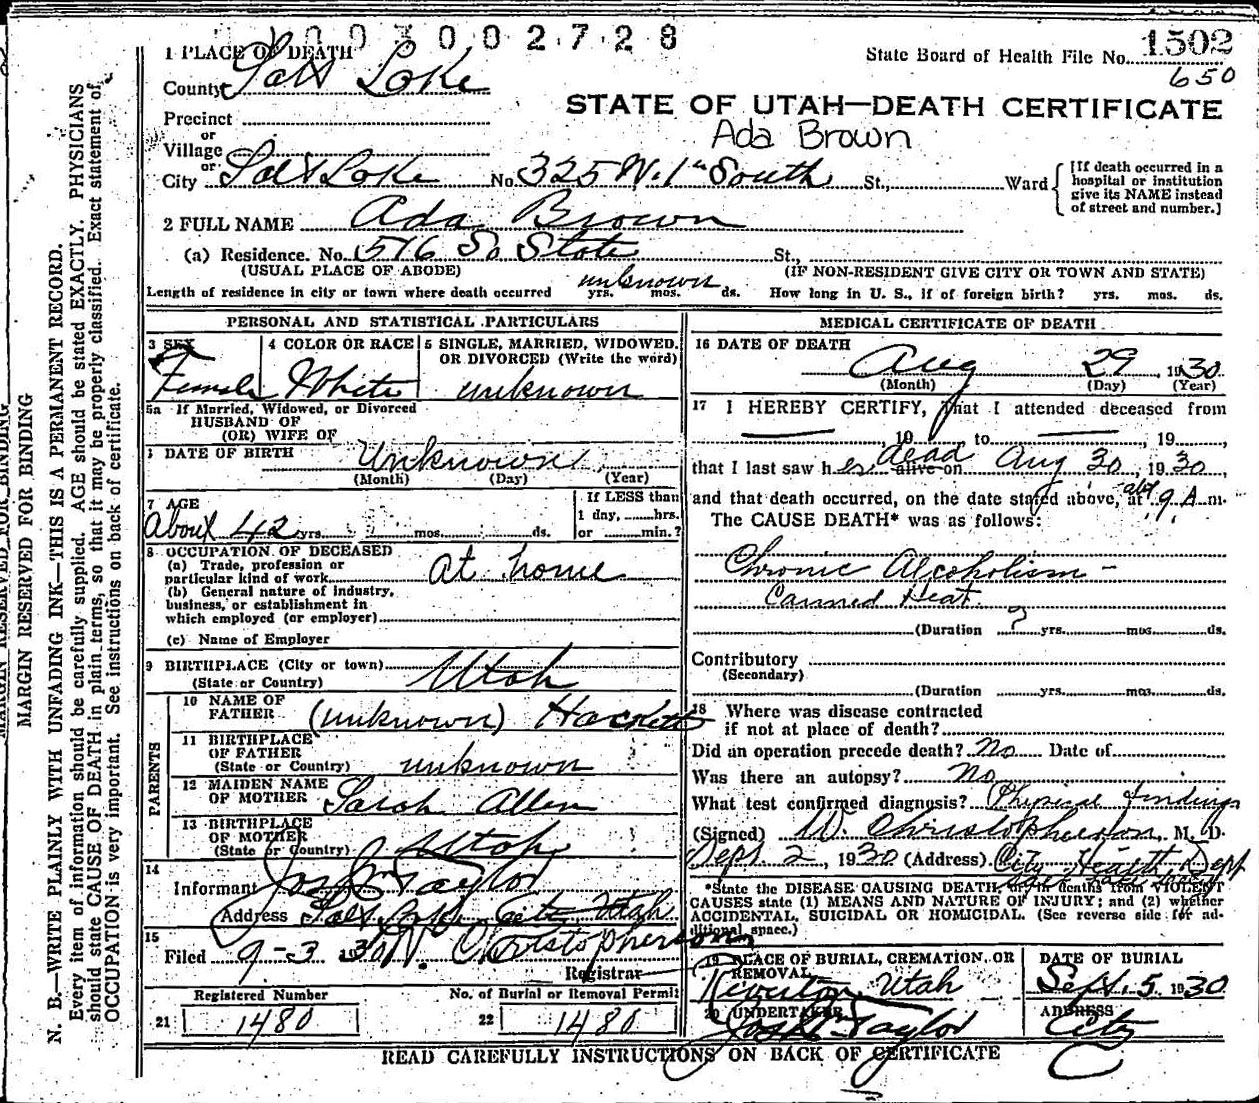 003002728
1 PLACE OF DEATH
State Board of Health File No. 1502
650
County Salt Lake
STATE OF UTAH—DEATH CERTIFICATE
Precinct
Ada Brown
or
Village
or
City Salt Lake No. 325 W. 1st South St., Ward
[If death occurred in a hospital or institution give its NAME instead of street and number.]
2 FULL NAME Ada Brown
(a) Residence. No. 516 So State St.,
(USUAL PLACE OF ABODE) (IF NON-RESIDENT GIVE CITY OR TOWN AND STATE)
unknown
Length of residence in city or town where death occurred yrs. mos. ds. How long in U. S., if of foreign birth? yrs. mos. ds.
PERSONAL AND STATISTICAL PARTICULARS
3 SEX
Female
4 COLOR OR RACE
White
5 SINGLE, MARRIED, WIDOWED.
OR DIVORCED (Write the word)
unknown
5a If Married, Widowed, or Divorced
HUSBAND OF
(OR) WIFE OF
DATE OF BIRTH Unknown
(Month) (Day) (Year)
7 AGE
About 42 yrs. mos. ds.
If LESS than
1 day, hrs.
or min.?
8 OCCUPATION OF DECEASED
(a) Trade, profession or
particular kind of work At home
(b) General nature of industry,
business, or establishment in
which employed (or employer)
(c) Name of Employer
9 BIRTHPLACE (City or town)
(State or Country) Utah
PARENTS
10 NAME OF
FATHER (unknown) Hackett
11 BIRTHPLACE
OF FATHER
(State or Country) unknown
12 MAIDEN NAME
OF MOTHER Sarah Allen
13 BIRTHPLACE
OF MOTHER
(State or Country) Utah
14
Informant Jos Wm Taylor
(Address Salt Lake City Utah
15
Filed 9-3 1930 W. Christopherson
Registrar
Registered Number No. of Burial or Removal Permit
21 1480 22 1480
MEDICAL CERTIFICATE OF DEATH
16 DATE OF DEATH
Aug 29, 1930
(Month) (Day) (Year)
17 I HEREBY CERTIFY, That I attended deceased from
, 19 , to , 19 ,
that I last saw her dead alive on Aug 30, 1930,
and that death occurred, on the date stated above, at abt 9 A.m.
The CAUSE DEATH* was as follows:
Chronic Alcoholism -
Canned Heat.
(Duration ? yrs. mos. ds.
Contributory
(Secondary)
(Duration yrs. mos. ds.
18 Where was disease contracted
if not at place of death?
Did an operation precede death? No Date of
Was there an autopsy? No
What test confirmed diagnosis? Physical findings
(Signed) W. Christopherson, M. D.
Sept. 2, 1930 (Address) City Health Dept
*State the DISEASE CAUSING DEATH, or in deaths from VIOLENT
CAUSES state (1) MEANS AND NATURE OF INJURY; and (2) whether
ACCIDENTAL, SUICIDAL OR HOMICIDAL. (See reverse side for ad-
ditional space.)
19 PLACE OF BURIAL, CREMATION, OR
REMOVAL
Riverton, Utah
DATE OF BURIAL
Sept. 5 1930
20 UNDERTAKER
Jos Wm Taylor
ADDRESS
City
READ CAREFULLY INSTRUCTIONS ON BACK OF CERTIFICATE
MARGIN RESERVED FOR BINDING
MARGIN RESERVED FOR BINDING
N. B.—WRITE PLAINLY WITH UNFADING INK—THIS IS A PERMANENT RECORD.
Every item of information should be carefully supplied. AGE should be stated EXACTLY. PHYSICIANS
should state CAUSE OF DEATH in plain terms, so that it may be properly classified. Exact statement of
OCCUPATION is very important. See instructions on back of certificate.